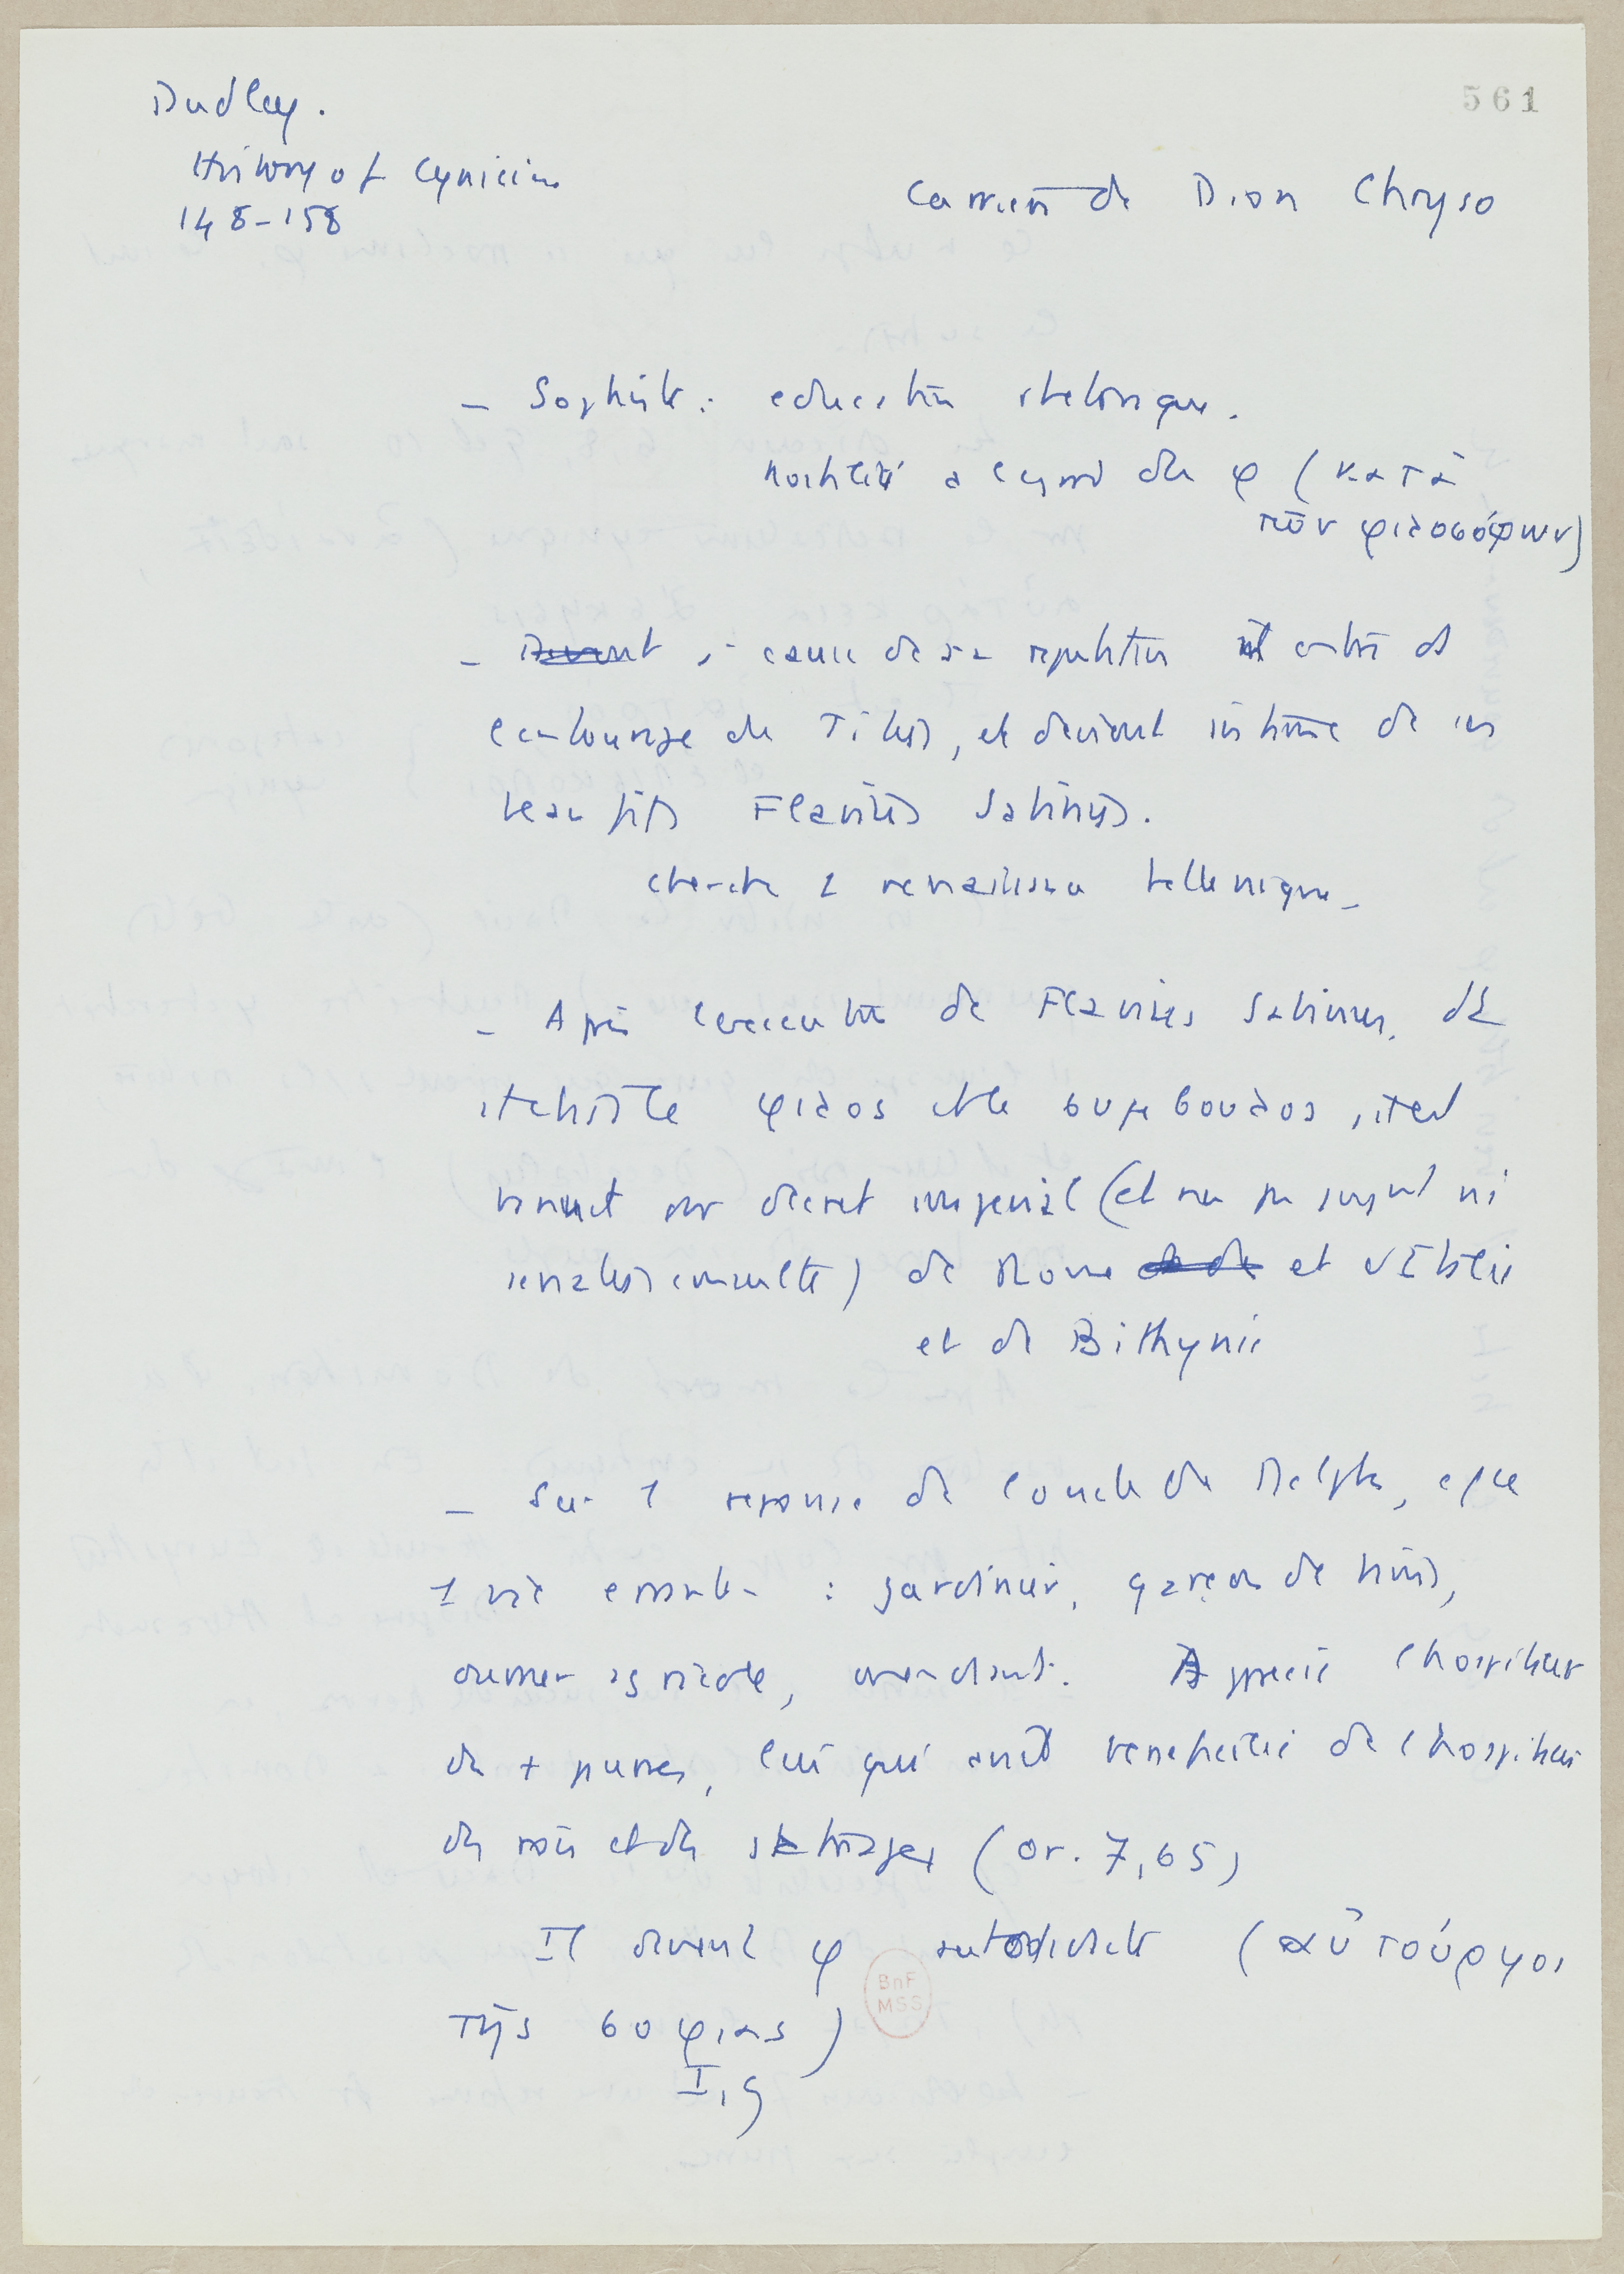 Dudley.
561
History of Cynicism
148-158
Carrière de Dion Chryso
– Sophiste : education rhetorique.
hostilité a l'egard des φ (κατὰ
τῶν φιλοσόφων)
– Devient à cause de sa reputation est entré ds
l'entourage de Titus, et devient intime de son
beau fils Flavius Sabinus.
cherche 1 renaissance hellenique –
– Après l'execution de Flavius Sabinus, dt
il etait le φιλος et le συμβουλος, il est
banni par decret imperial (et non par jugmt ni
senatus consulte) de Rome de de et d'Italie
et de Bithynie
– Sur 1 reponse de l'oracle de Delphes,
1 vie errante : jardinier, garçon de bains,
ouvrier agricole, mendiant. Apprecie l'hospitalité
des + pauvres, lui qui avait beneficié de l'hospitalité
des rois et des satrapes (or. 7, 65)
Il devient φ autodidacte (αὐτούργος
τῆς σοφιας)
I, 9
BnF
MSS